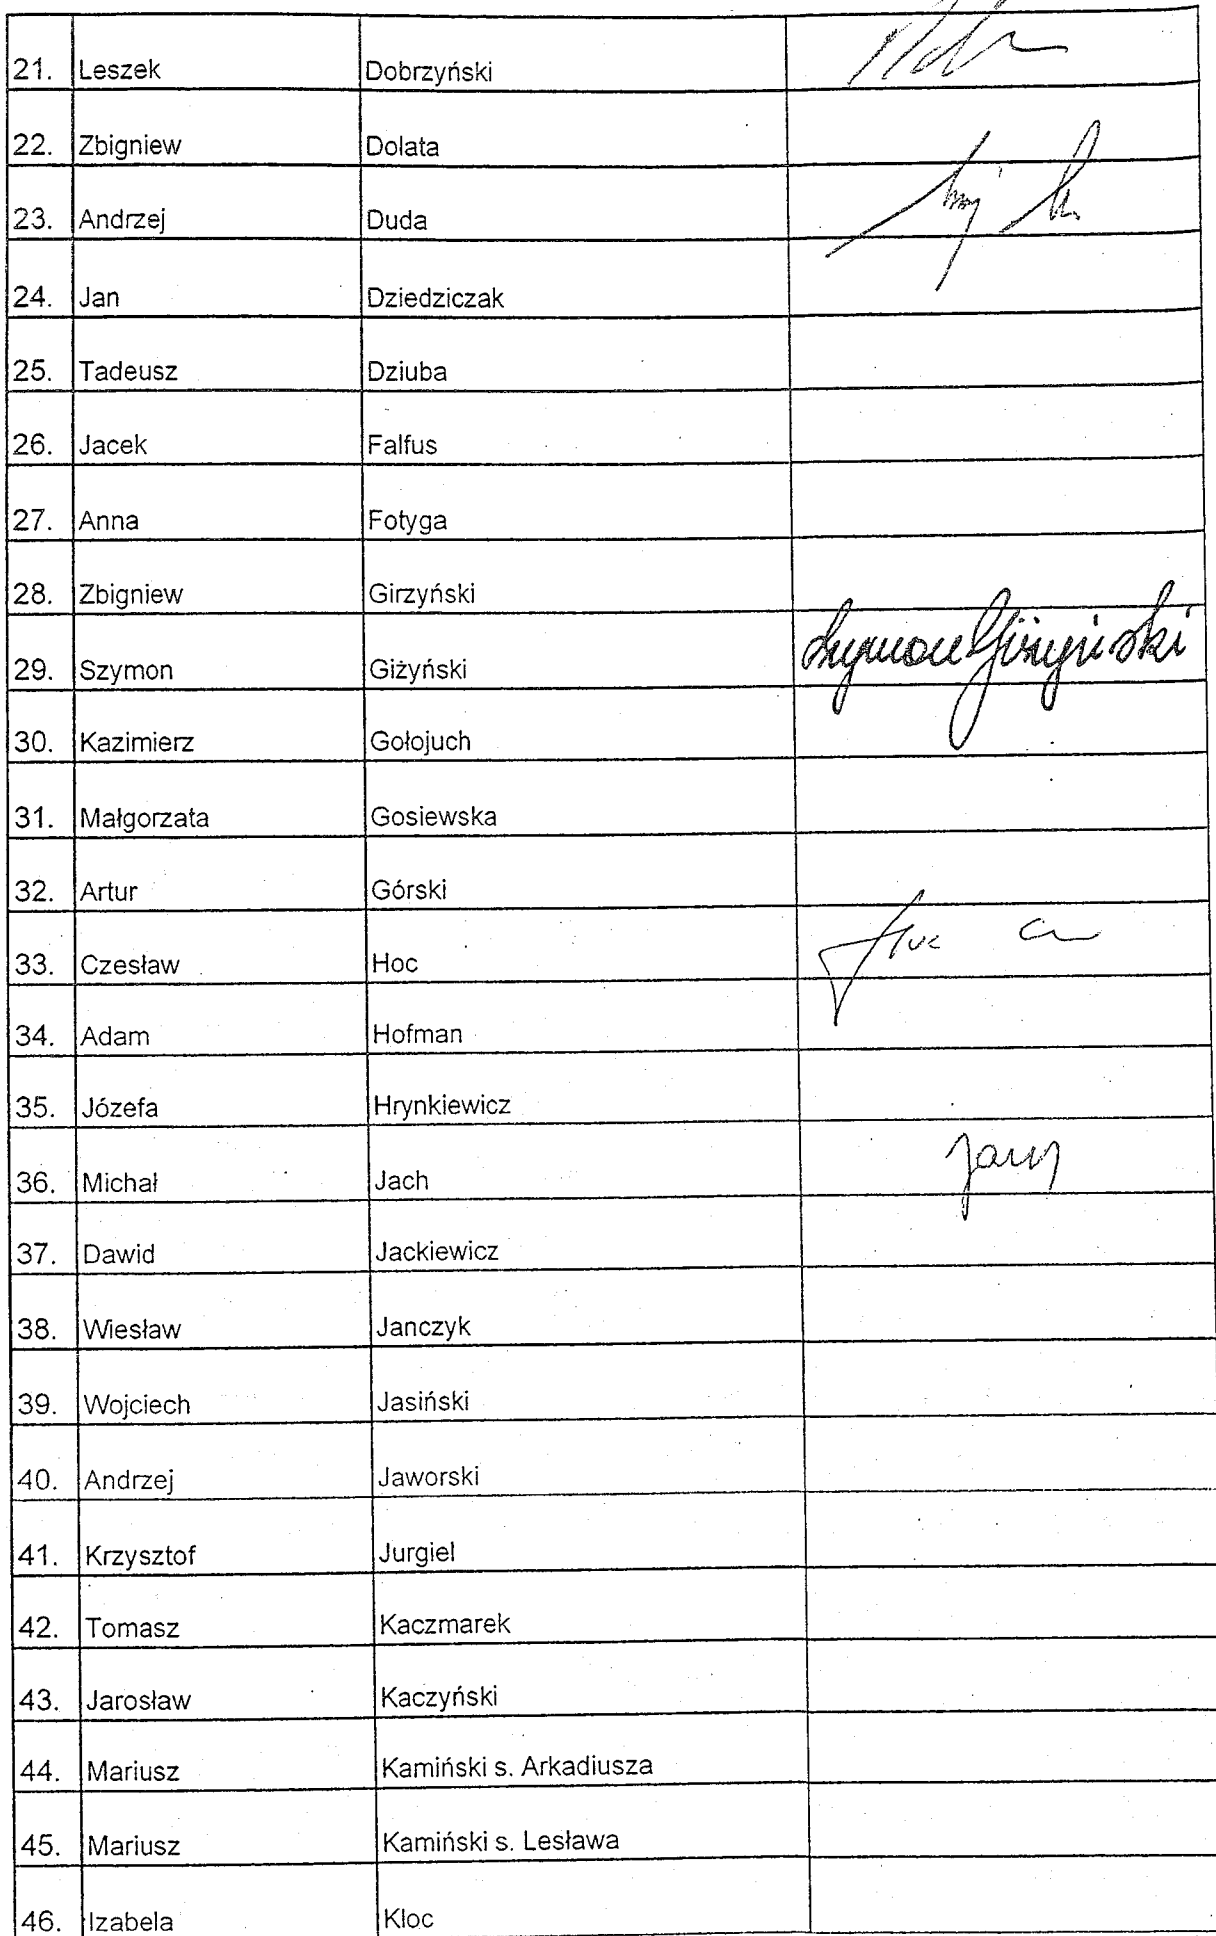 21. Leszek Dobrzyński
22. Zbigniew Dolata
23. Andrzej Duda
24. Jan Dziedziczak
25. Tadeusz Dziuba
26. Jacek Falfus
27. Anna Fotyga
28. Zbigniew Girzyński
29. Szymon Giżyński Szymon Giżyński
30. Kazimierz Gołojuch
31. Małgorzata Gosiewska
32. Artur Górski
33. Czesław Hoc
34. Adam Hofman
35. Józefa Hrynkiewicz
36. Michał Jach
37. Dawid Jackiewicz
38. Wiesław Janczyk
39. Wojciech Jasiński
40. Andrzej Jaworski
41. Krzysztof Jurgiel
42. Tomasz Kaczmarek
43. Jarosław Kaczyński
44. Mariusz Kamiński s. Arkadiusza
45. Mariusz Kamiński s. Lesława
46. Izabela Kloc